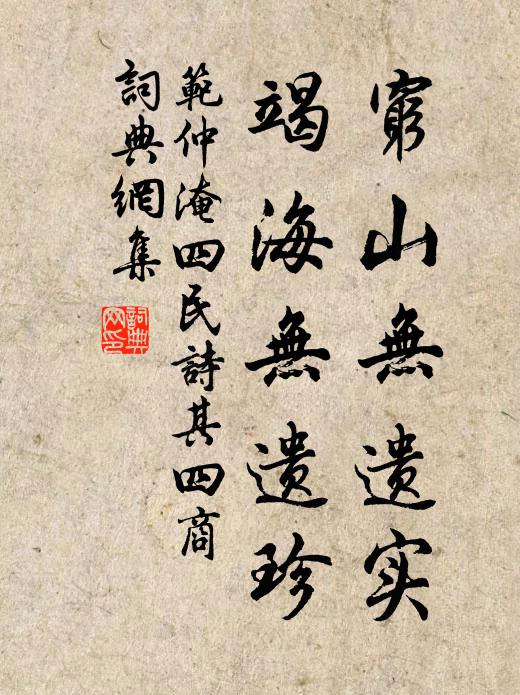 窮山無遗实
竭海無遗珍
範仲淹四民詩其四商
詞典網集
詞典网印